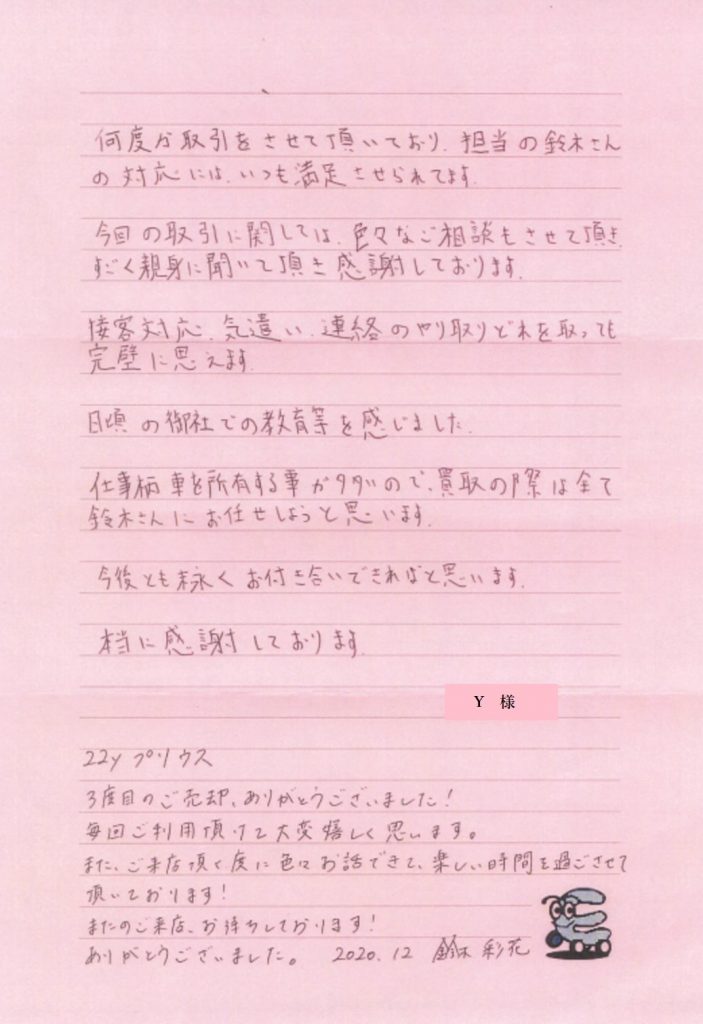 何度か取引をさせて頂いており、担当の鈴木さん
の対応には、いつも満足させられてます。
今回の取引に関しては、色々なご相談もさせて頂き、
すごく親身に聞いて頂き感謝しております。
接客対応、気遣い、連絡のやり取りどれを取っても
完璧に思えます。
日頃の御社での教育等を感じました。
仕事柄車を所有する事が多いので、買取の際は全て
鈴木さんにお任せしようと思います。
今後とも末永くお付き合いできればと思います。
本当に感謝しております。
Y 様
22y プリウス
3度目のご売却、ありがとうございました!
毎回ご利用頂けて大変嬉しく思います。
また、ご来店頂く度に色々お話できて、楽しい時間を過ごさせて
頂いております!
またのご来店、お待ちしております!
ありがとうございました。 2020.12 鈴木 彩花